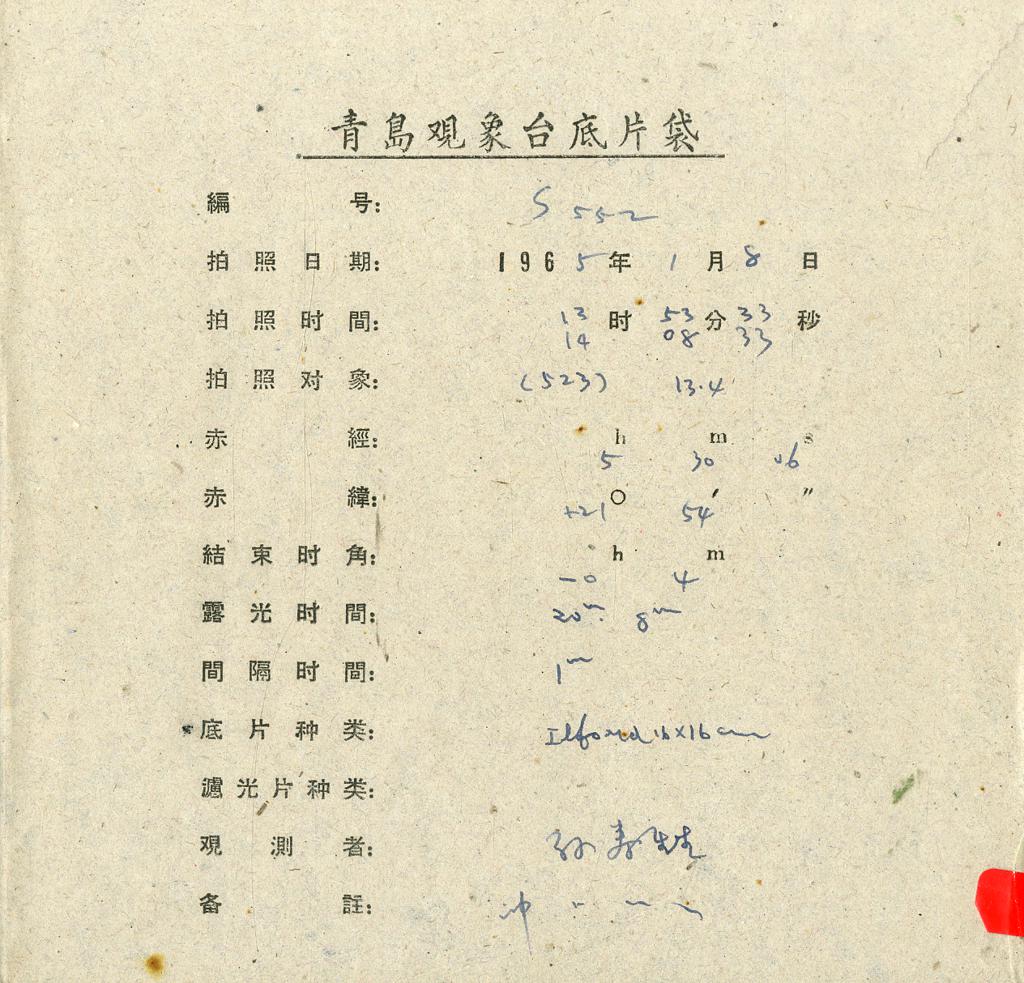 青島观象台底片袋
編号: S 552
拍照日期: 1965年 1月 8日
拍照时間: 13时 53分 33秒
14 08 33
拍照对象: (523) 13.4
赤經: h m s
5 30 06
赤緯: ○ ′ ″
+21 54
結束时角: h m
-0 4
露光时間: 20m. 8m
間隔时間: 1m
底片种类: Ilford 16×16cm
濾光片种类:
观測者: 孙寿
备註: 冲 〃